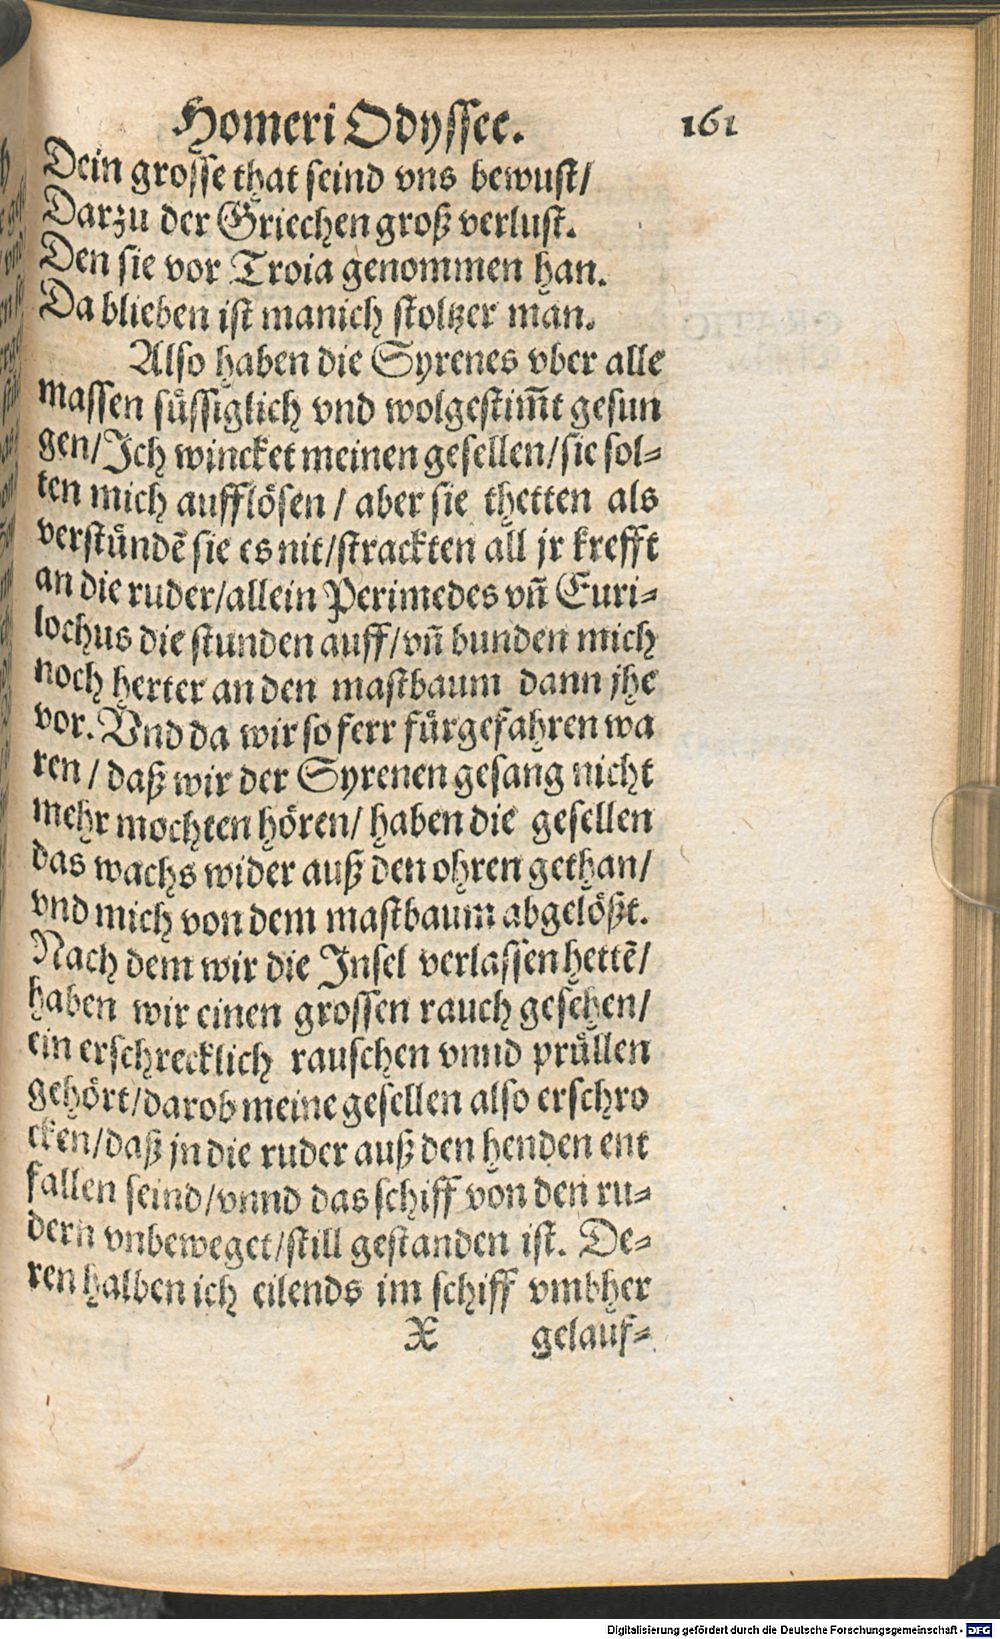 Homeri Odyssee. 161
Dein grosse that seind vns bewust/
Darzu der Griechen groß verlust.
Den sie vor Troia genommen han.
Da blieben ist manich stoltzer man.
Also haben die Syrenes vber alle
massen süssiglich vnd wolgestim̄t gesun
gen/Jch wincket meinen gesellen/sie sol-
ten mich aufflösen / aber sie thetten als
verstündē sie es nit/strackten all jr krefft
an die ruder/allein Perimedes vn̄ Euri-
lochus die stunden auff/vn̄ bunden mich
noch herter an den mastbaum dann jhe
vor. Vnd da wir so ferr fürgefahren wa
ren / daß wir der Syrenen gesang nicht
mehr mochten hören/ haben die gesellen
das wachs wider auß den ohren gethan/
vnd mich von dem mastbaum abgelößt.
Nach dem wir die Jnsel verlassen hettē/
haben wir einen grossen rauch gesehen/
ein erschrecklich rauschen vnnd prüllen
gehört/darob meine gesellen also erschro
cken/daß jn die ruder auß den henden ent
fallen seind/vnnd das schiff von den ru-
dern vnbeweget/still gestanden ist. De-
ren halben ich eilends im schiff vmbher
X gelauf-
Digitalisierung gefördert durch die Deutsche Forschungsgemeinschaft - DFG